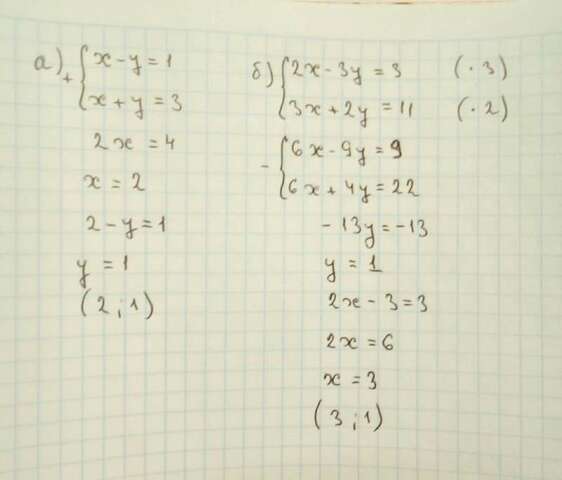 а) + { x - y = 1
x + y = 3
2x = 4
x = 2
2 - y = 1
y = 1
(2 ; 1)
б) { 2x - 3y = 3 (· 3)
3x + 2y = 11 (· 2)
- { 6x - 9y = 9
6x + 4y = 22
- 13y = -13
y = 1
2x - 3 = 3
2x = 6
x = 3
(3 ; 1)